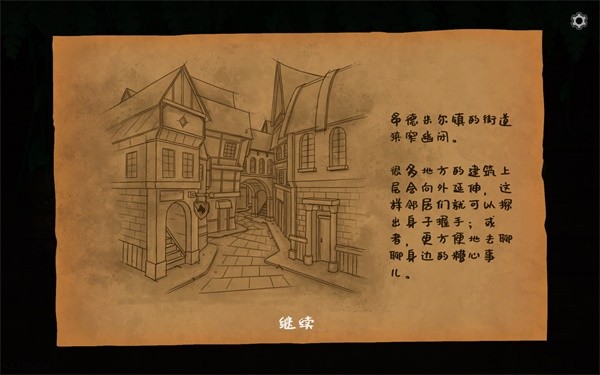 帛德米尔镇的街道
狭窄幽闭。
很多地方的建筑上
层会向外延伸，这
样邻居们就可以探
出身子握手；或
者，更方便地去聊
聊身边的糟心事
儿。
继续